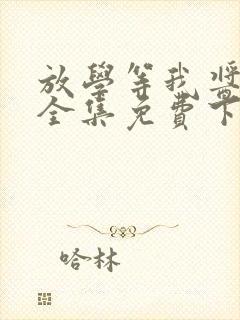 放學等我 將
全集免費下
哈林